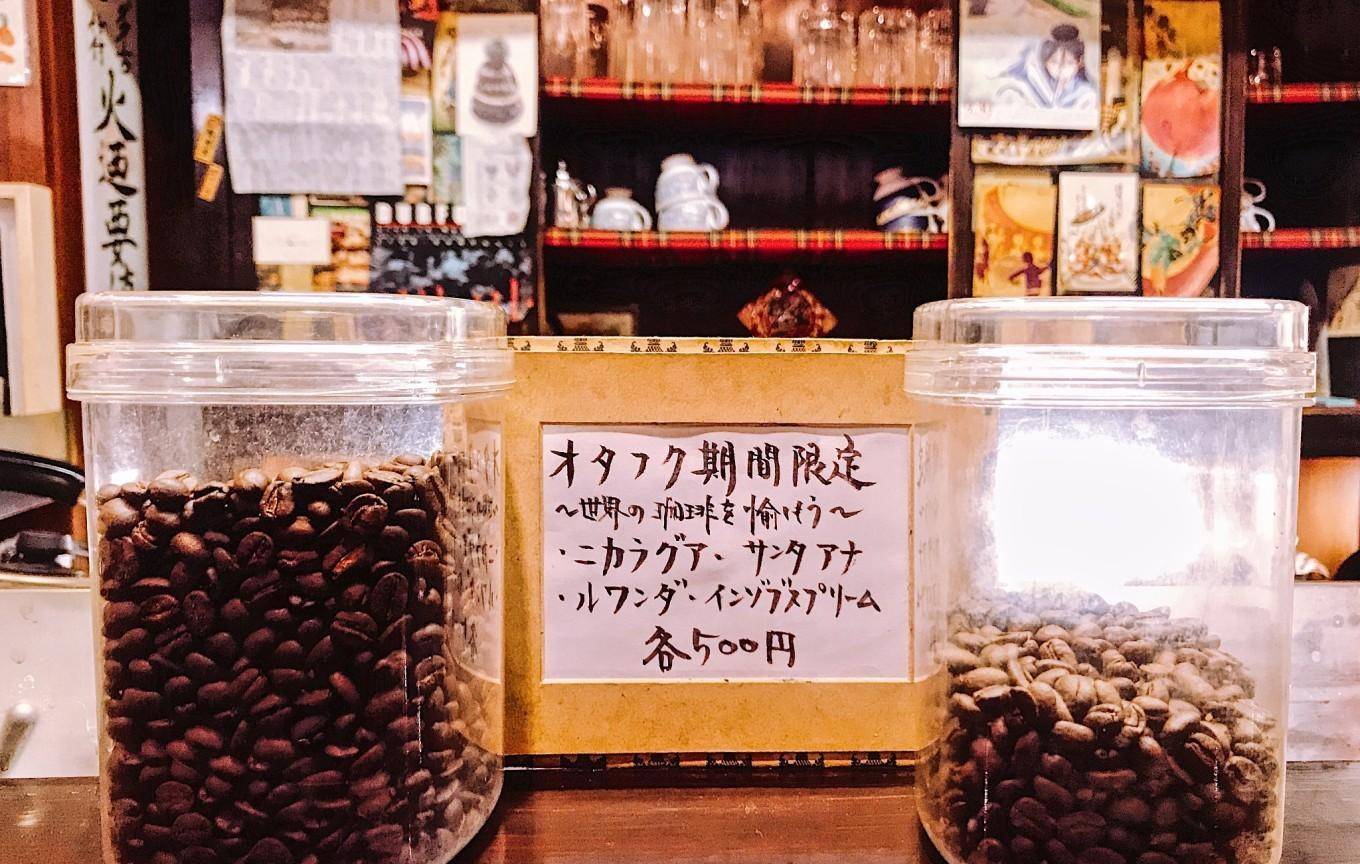 火迺要慎
オタフク期間限定
～世界の珈琲を愉しもう～
・ニカラグア・サンタアナ
・ルワンダ・インゾブスプリーム
各500円